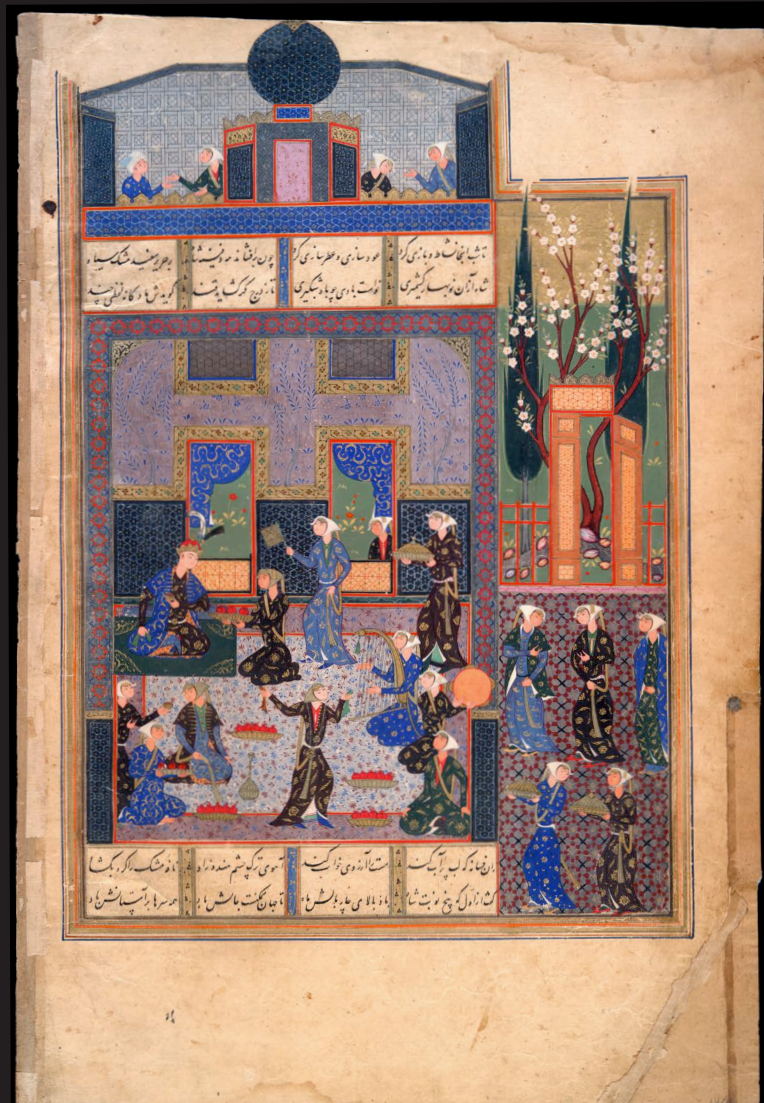 تا شب آنجا نشاط و بازی کرد عود سازی و عطر سازی کرد چون برافشاند بر حریر سفید مشک سیاه
شاه ازان نوبهار کشمیری خواست بادی چو باد شبگیری تا ز درج گهر گشاید قند گویدش مادگانه لفظی چند
زان فسانه که لب پر آب کند مست را آرزوی خواب کند آهوی ترک چشم هندو زاد نافه مشک را گره بگشاد
گفت از اول که پنج نوبت شاه باد بالای چار بالش ماه تا جهان ممکنست جانش باد همه سرها بر آستانش باد